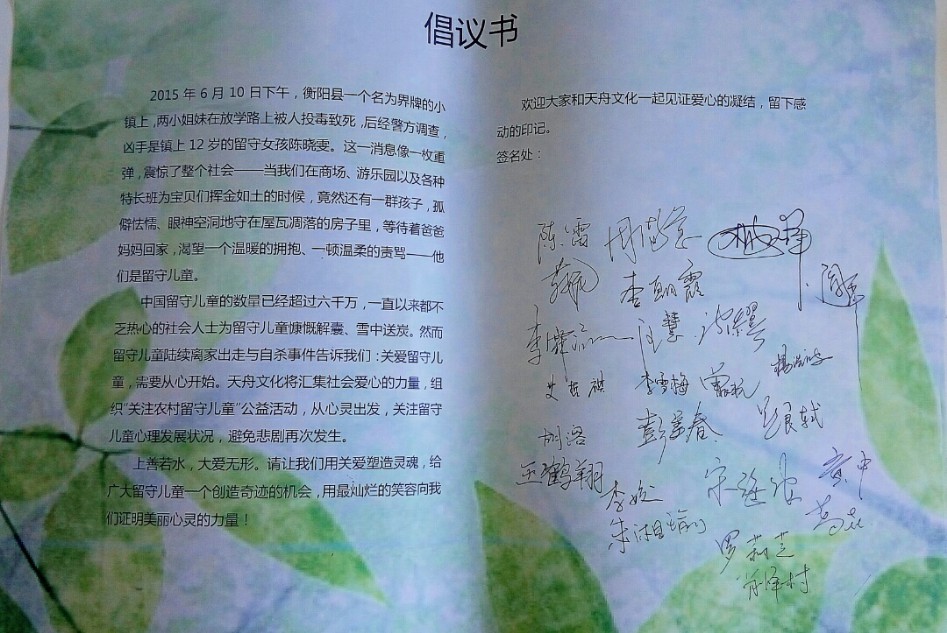 倡议书
2015 年 6 月 10 日下午，衡阳县一个名为界牌的小
镇上，两小姐妹在放学路上被人投毒致死，后经警方调查，
凶手是镇上 12 岁的留守女孩陈晓雯。这一消息像一枚重
弹，震惊了整个社会——当我们在商场、游乐园以及各种
特长班为宝贝们挥金如土的时候，竟然还有一群孩子，孤
僻怯懦、眼神空洞地守在屋瓦凋落的房子里，等待着爸爸
妈妈回家，渴望一个温暖的拥抱、一顿温柔的责骂——他
们是留守儿童。
中国留守儿童的数量已经超过六千万，一直以来都不
乏热心的社会人士为留守儿童慷慨解囊、雪中送炭。然而
留守儿童陆续离家出走与自杀事件告诉我们：关爱留守儿
童，需要从心开始。天舟文化将汇集社会爱心的力量，组
织“关注农村留守儿童”公益活动，从心灵出发，关注留守
儿童心理发展状况，避免悲剧再次发生。
上善若水，大爱无形。请让我们用关爱塑造灵魂，给
广大留守儿童一个创造奇迹的机会，用最灿烂的笑容向我
们证明美丽心灵的力量！
欢迎大家和天舟文化一起见证爱心的凝结，留下感
动的印记。
签名处：
陈雷
李朝霞
李雪梅
胡洛
王鹤翔
李姣
罗莉芝